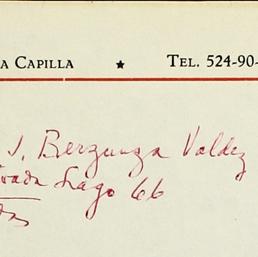 A CAPILLA ★ TEL. 524-90-
J. Berzunza Valdez
vada Lago 66